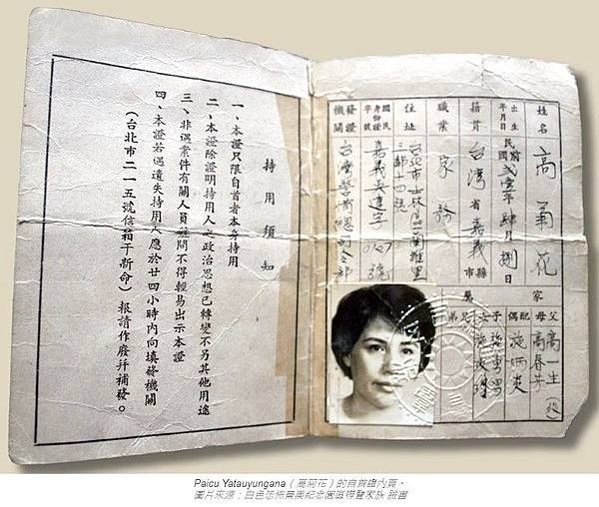 姓名 高菊花
出生年月日 民國 貳壹年肆月捌日
籍貫 台灣省嘉義縣市
職業 家務
住址 台北市士林區蘭雅里
三鄰十四號
國民身份證字號 嘉義 字 號
發證機關 台灣警備總司令部
家屬
父 高一生(歿)
母 高春芳
配偶 施炳炎
子女
兄弟
持用須知
一、本證只限自首者本身持用
二、本證除證明持用人之政治思想已轉變不另其他用途
三、非遇案件有關人員詢問不得輕易出示本證
四、本證若遇遺失持用人應於廿四小時內向填發機關
(台北市二一五號信箱于新命)報請作廢并補發。
Paicu Yatauyungana(高菊花)的自首證內頁。
圖片來源:白色恐怖景美紀念園區導覽家族 臉書